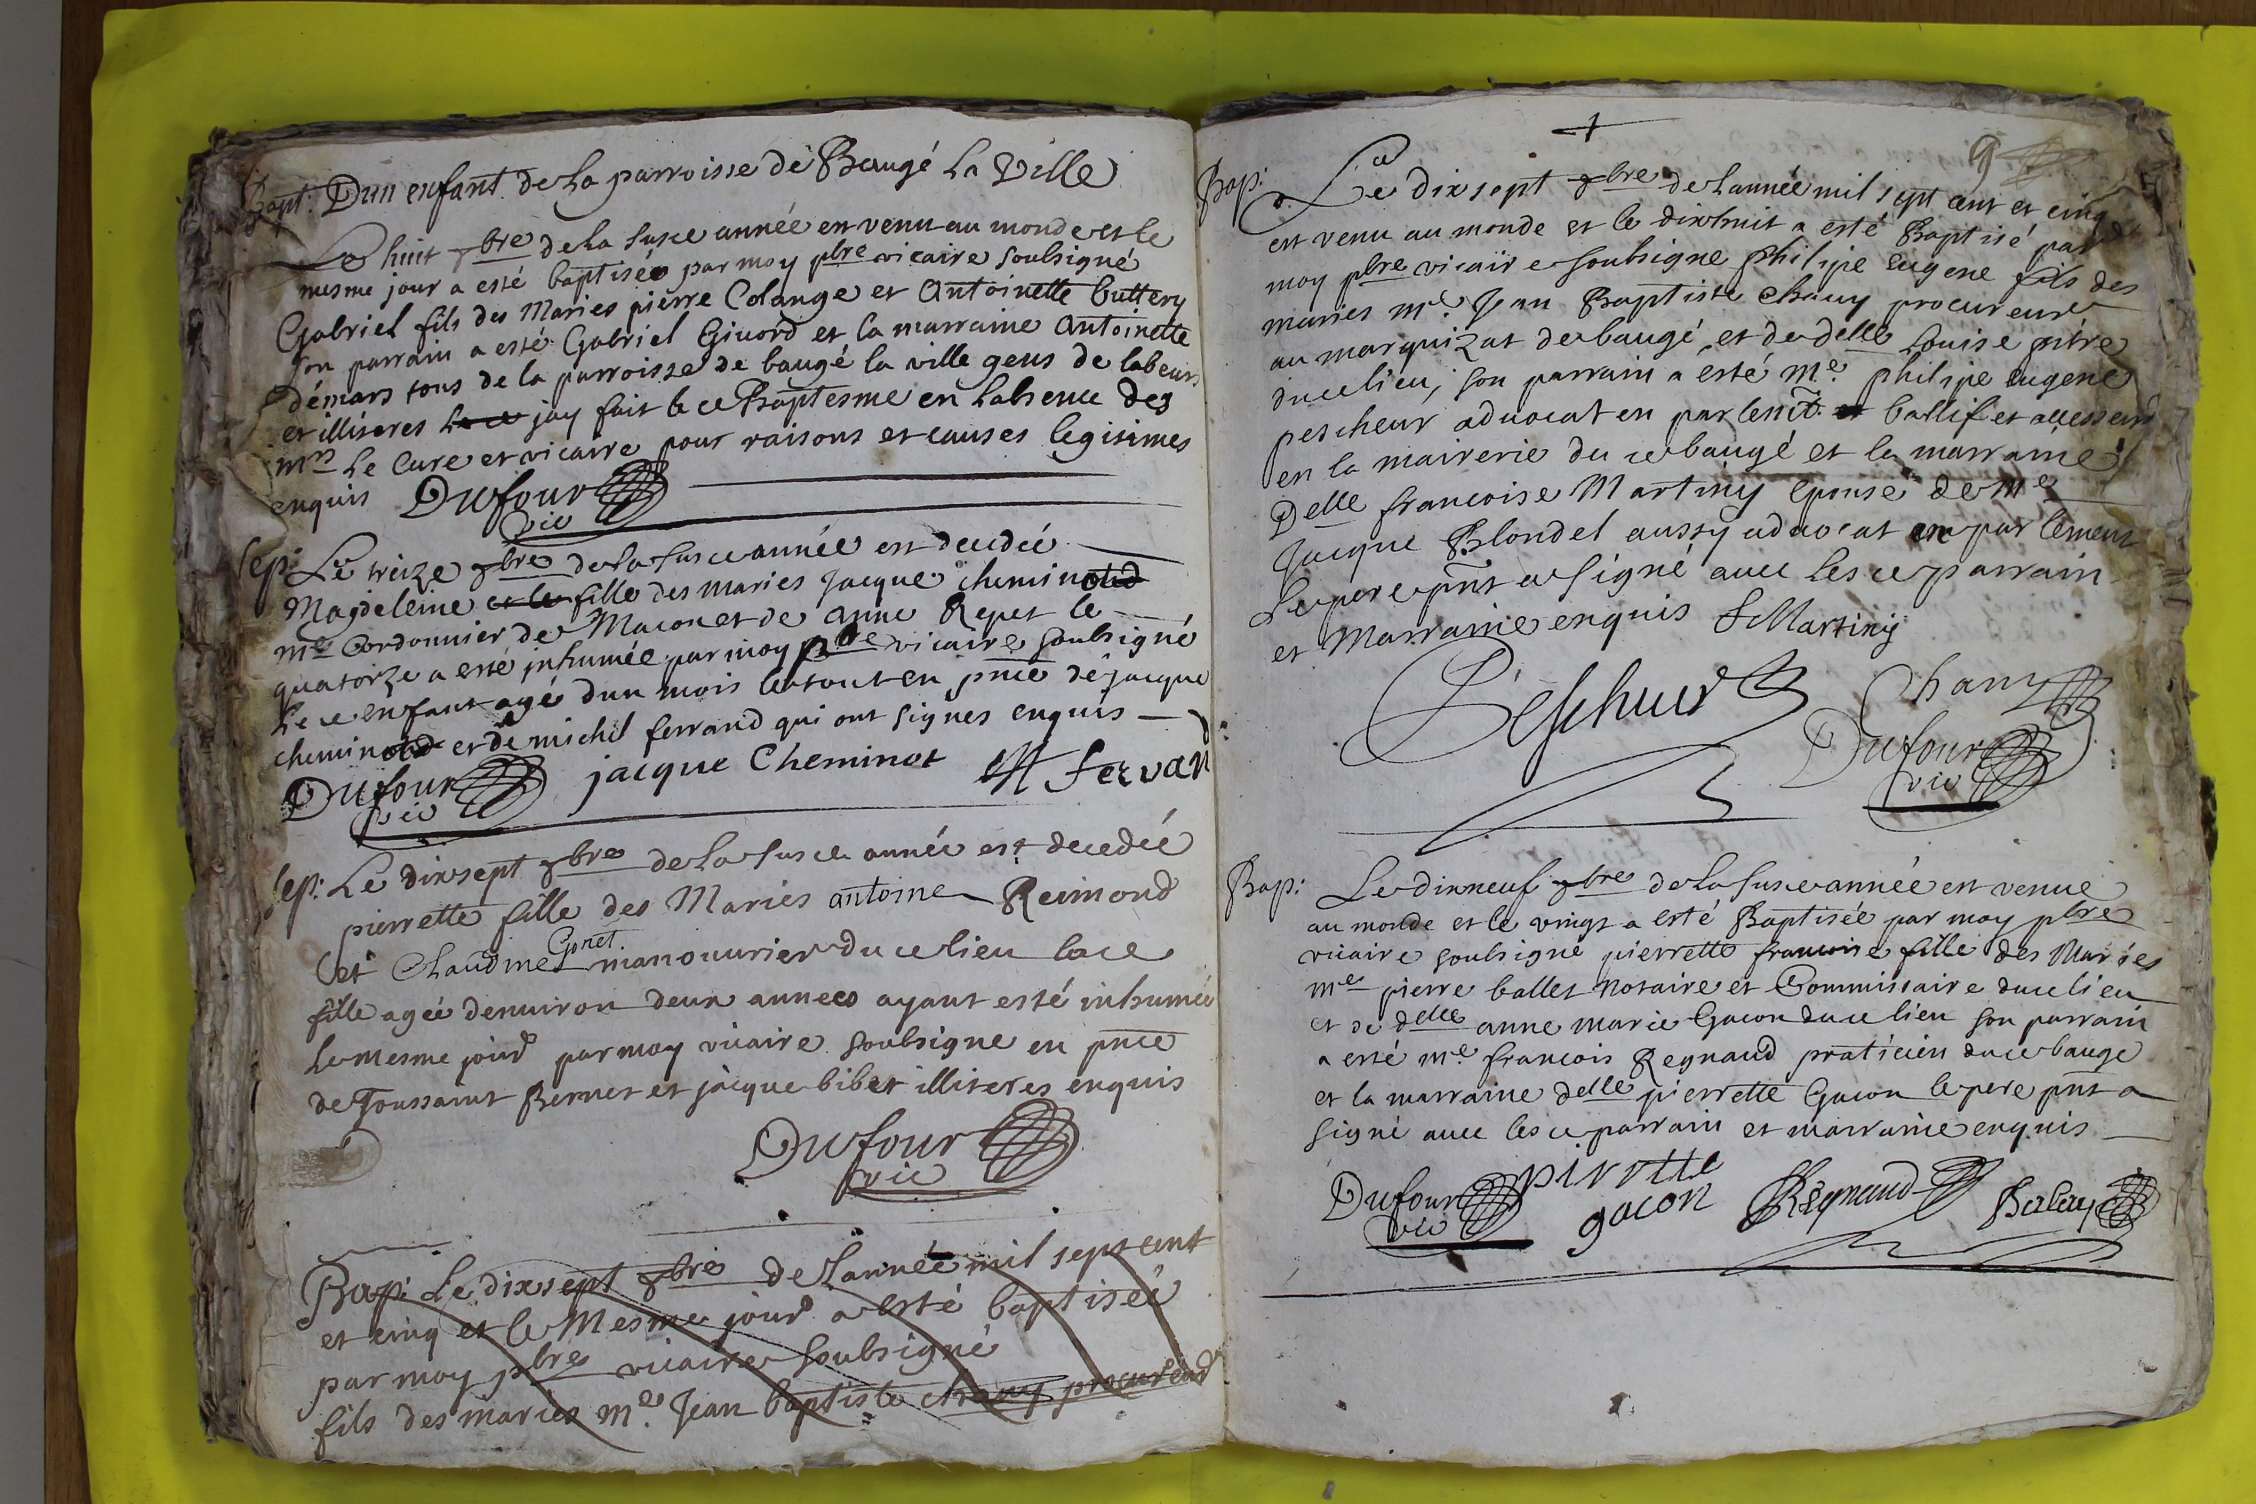 Bapt: Dun enfant de la parroisse de Baugé la Ville
Le huit 8bre de la susce année est venu au monde et le
mesme jour a esté baptisée par moy pbre vicaire soubsigné
Gabriel fils des Maries pierre Colange et Antoinette buttery
son parrain a esté Gabriel Givord et la marraine antoinette
démars tous de la parroisse de baugé la ville gens de labeurs
et illiteres jay fait le ce Baptesme en labsence des
mrs le Cure et vicaire pour raisons et causes legitimes
enquis Dufour
vic
Sep: Le treize 8bre de la susce année est decedée
Magdeleine et le fille des maries Jacque cheminot
me Cordonnier de Macon et de anne Repet le
quatorze a esté inhumée par moy pbre vicaire soubsigné
le ce enfant agé dun mois le tout en pnce de jacque
cheminot et de michel ferrand qui ont signes enquis
Dufour jacque Cheminot M fervan
vic
Sep: Le dixsept 8bre de la susce année est decedée
pierrette fille des Maries antoine Reimond
Gonet.
et Claudine manouvrier du ce lieu lace
fille agée denviron deux annees ayant esté inhumée
le mesme jour par moy vicaire soubsigne en pnce
de Toussaint Bernet et jacque bibet illiteres enquis
Dufour
vic
Bap: Le dixsept 8bre de Lannée mil sept cent
et cinq et le Mesme jour a esté baptisée
par moy pbre vicaire soubsigné
fils des maries me. Jean baptiste chany procureur
+
9
Bap: Le dixsept 8bre de Lannée mil sept cent et cinq
est venu au monde et le dixhuit a esté Baptisé par
moy pbre vicaire soubsigne philipe eugene fils des
maries me. Jean Baptiste chany procureur
au marquizat de baugé, et de delle Louise pitre
du ce lieu, son parrain a esté me. philipe eugene
pescheur advocat en parlent ballif et assesseur
en la mairerie du ce baugé et la marraine
Delle francoise Martiny epouse de me
Jacque Blondel aussy advocat en parlement
Le pere pnt a signé avec les ce parrain
et Marraine enquis f Martiny
Pescheur Chany
Dufour
vic
Bap: Le dixneuf 8bre de la susce année est venue
au monde et le vingt a esté Baptisée par moy pbre
vicaire soubsigné pierrette francoise fille des Maries
me pierre ballet Notaire et Commissaire du ce lieu
et de delle anne marie Gacon du ce lieu son parrain
a esté me. francois Regnaud praticien du ce baugé
et la marraine delle pierrette Gacon le pere pnt a
signé avec les ce parrain et marraine enquis
Dufour pirotte Regnaud
vic gacon